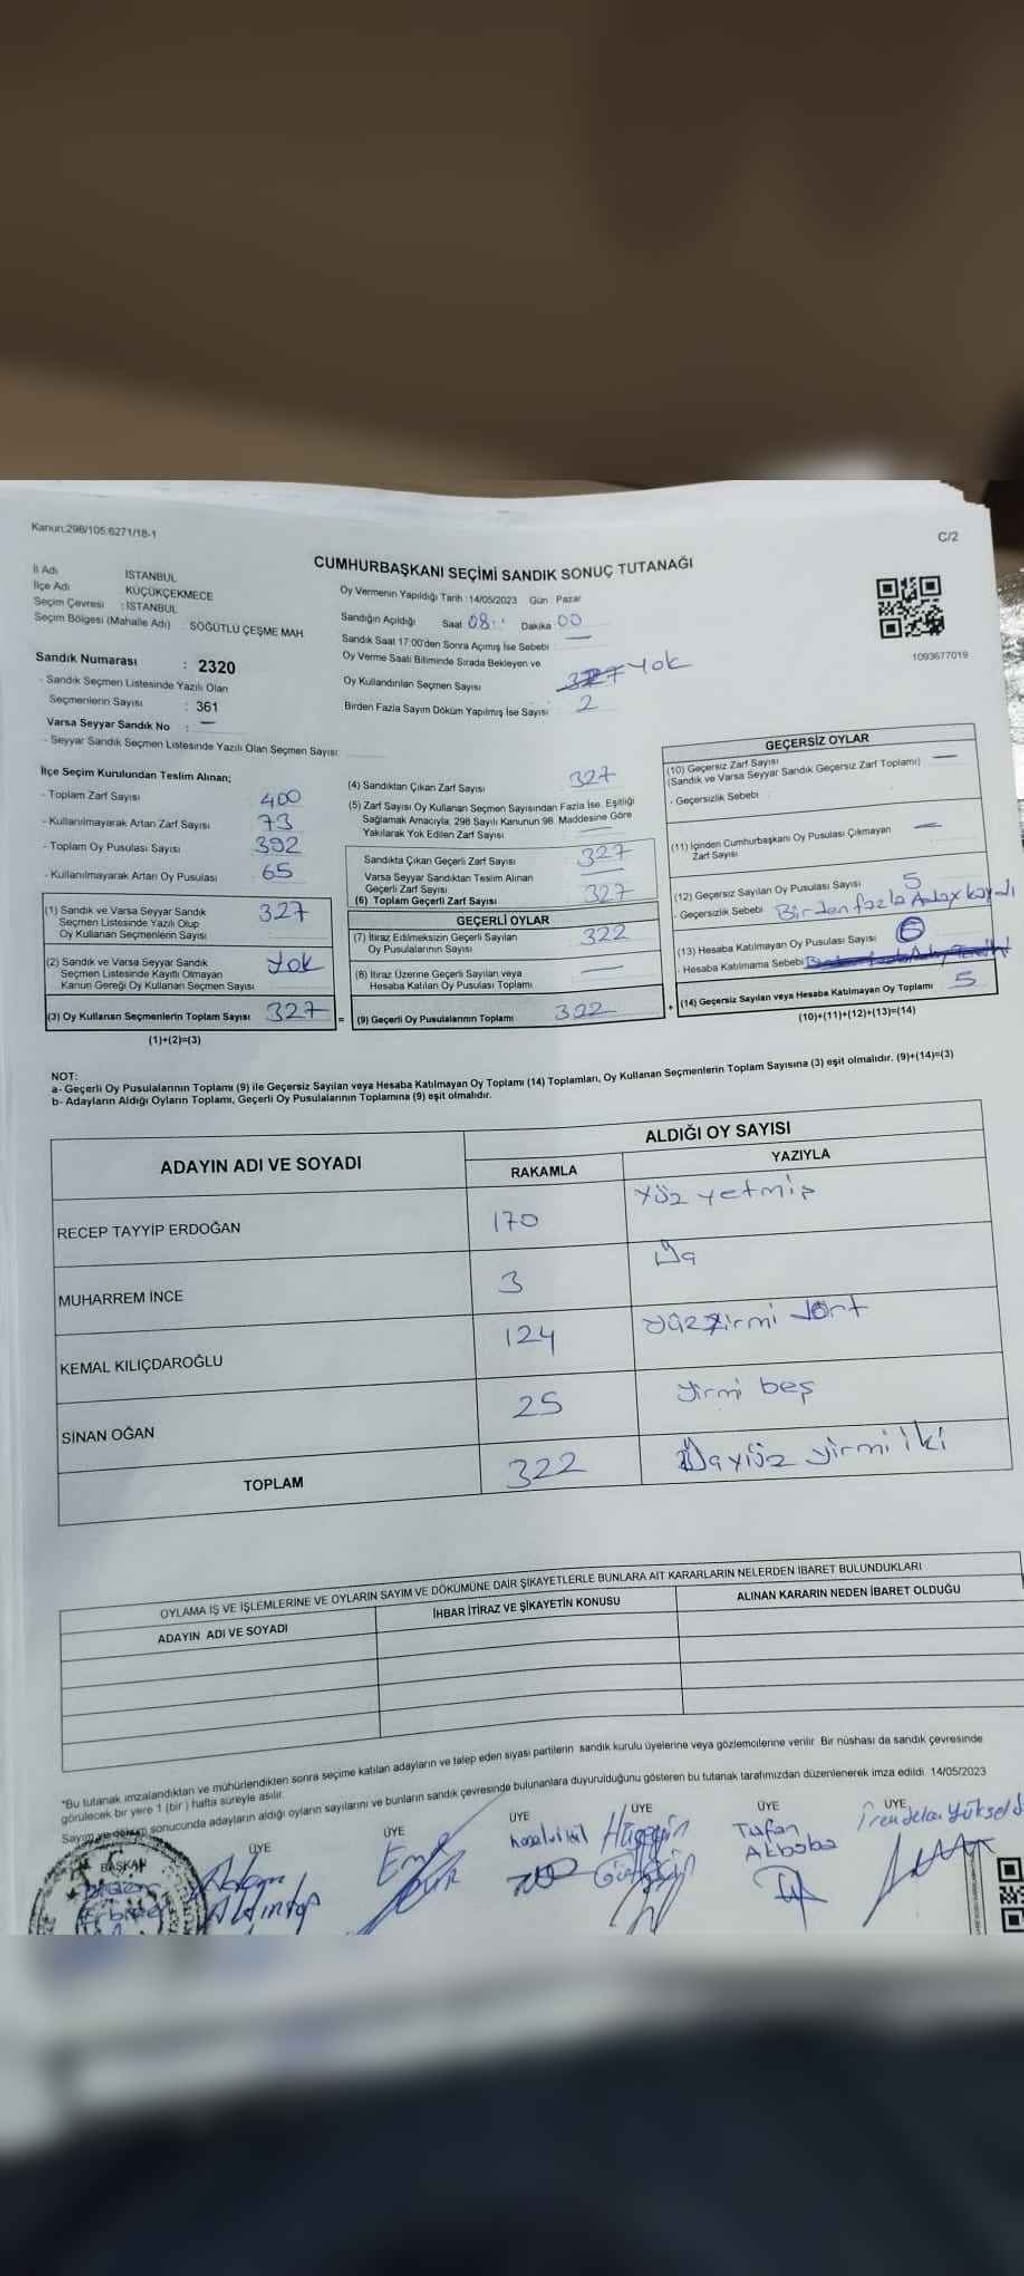 Kanun:298/105;6271/18-1
C/2
CUMHURBAŞKANI SEÇİMİ SANDIK SONUÇ TUTANAĞI
İl Adı İSTANBUL
İlçe Adı KÜÇÜKÇEKMECE
Seçim Çevresi : İSTANBUL
Seçim Bölgesi (Mahalle Adı) : SÖĞÜTLÜ ÇEŞME MAH
Sandık Numarası : 2320
- Sandık Seçmen Listesinde Yazılı Olan
Seçmenlerin Sayısı : 361
Varsa Seyyar Sandık No : —
- Seyyar Sandık Seçmen Listesinde Yazılı Olan Seçmen Sayısı:
Oy Vermenin Yapıldığı Tarih : 14/05/2023 Gün Pazar
Sandığın Açıldığı Saat 08 Dakika 00
Sandık Saat 17:00'den Sonra Açılmış İse Sebebi —
Oy Verme Saati Bitiminde Sırada Bekleyen ve
Oy Kullandırılan Seçmen Sayısı 327 Yok
Birden Fazla Sayım Döküm Yapılmış İse Sayısı 2
1093677019
İlçe Seçim Kurulundan Teslim Alınan;
- Toplam Zarf Sayısı 400
- Kullanılmayarak Artan Zarf Sayısı 73
- Toplam Oy Pusulası Sayısı 392
- Kullanılmayarak Artan Oy Pusulası 65
(1) Sandık ve Varsa Seyyar Sandık 327
Seçmen Listesinde Yazılı Olup
Oy Kullanan Seçmenlerin Sayısı
(2) Sandık ve Varsa Seyyar Sandık Yok
Seçmen Listesinde Kayıtlı Olmayan
Kanun Gereği Oy Kullanan Seçmen Sayısı
(3) Oy Kullanan Seçmenlerin Toplam Sayısı 327 =
(1)+(2)=(3)
(4) Sandıktan Çıkan Zarf Sayısı 327
(5) Zarf Sayısı Oy Kullanan Seçmen Sayısından Fazla İse, Eşitliği
Sağlamak Amacıyla, 298 Sayılı Kanunun 98. Maddesine Göre
Yakılarak Yok Edilen Zarf Sayısı —
Sandıkta Çıkan Geçerli Zarf Sayısı 327
Varsa Seyyar Sandıktan Teslim Alınan
Geçerli Zarf Sayısı —
(6) Toplam Geçerli Zarf Sayısı 327
GEÇERLİ OYLAR
(7) İtiraz Edilmeksizin Geçerli Sayılan 322
Oy Pusulalarının Sayısı
(8) İtiraz Üzerine Geçerli Sayılan veya —
Hesaba Katılan Oy Pusulası Toplamı
(9) Geçerli Oy Pusulalarının Toplamı 322 +
GEÇERSİZ OYLAR
(10) Geçersiz Zarf Sayısı —
(Sandık ve Varsa Seyyar Sandık Geçersiz Zarf Toplamı)
- Geçersizlik Sebebi
(11) İçinden Cumhurbaşkanı Oy Pusulası Çıkmayan —
Zarf Sayısı
(12) Geçersiz Sayılan Oy Pusulası Sayısı 5
- Geçersizlik Sebebi Birden fazla
(13) Hesaba Katılmayan Oy Pusulası Sayısı
- Hesaba Katılmama Sebebi
(14) Geçersiz Sayılan veya Hesaba Katılmayan Oy Toplamı 5
(10)+(11)+(12)+(13)=(14)
NOT:
a- Geçerli Oy Pusulalarının Toplamı (9) ile Geçersiz Sayılan veya Hesaba Katılmayan Oy Toplamı (14) Toplamları, Oy Kullanan Seçmenlerin Toplam Sayısına (3) eşit olmalıdır. (9)+(14)=(3)
b- Adayların Aldığı Oyların Toplamı, Geçerli Oy Pusulalarının Toplamına (9) eşit olmalıdır.
ADAYIN ADI VE SOYADI ALDIĞI OY SAYISI
RAKAMLA YAZIYLA
RECEP TAYYİP ERDOĞAN 170 Yüz yetmiş
MUHARREM İNCE 3 Üç
KEMAL KILIÇDAROĞLU 124 Yüzyirmi dört
SİNAN OĞAN 25 Yirmi beş
TOPLAM 322 Üçyüz yirmi iki
OYLAMA İŞ VE İŞLEMLERİNE VE OYLARIN SAYIM VE DÖKÜMÜNE DAİR ŞİKAYETLERLE BUNLARA AİT KARARLARIN NELERDEN İBARET BULUNDUKLARI
ADAYIN ADI VE SOYADI İHBAR İTİRAZ VE ŞİKAYETİN KONUSU ALINAN KARARIN NEDEN İBARET OLDUĞU
*Bu tutanak imzalandıktan ve mühürlendikten sonra seçime katılan adayların ve talep eden siyasi partilerin sandık kurulu üyelerine veya gözlemcilerine verilir. Bir nüshası da sandık çevresinde
görülecek bir yere 1 (bir) hafta süreyle asılır.
Sayım ve döküm sonucunda adayların aldığı oyların sayılarını ve bunların sandık çevresinde bulunanlara duyurulduğunu gösteren bu tutanak tarafımızdan düzenlenerek imza edildi. 14/05/2023
BAŞKAN ÜYE ÜYE ÜYE ÜYE ÜYE ÜYE
Adem Altıntop
Hüseyin
Tufan
Akbaba